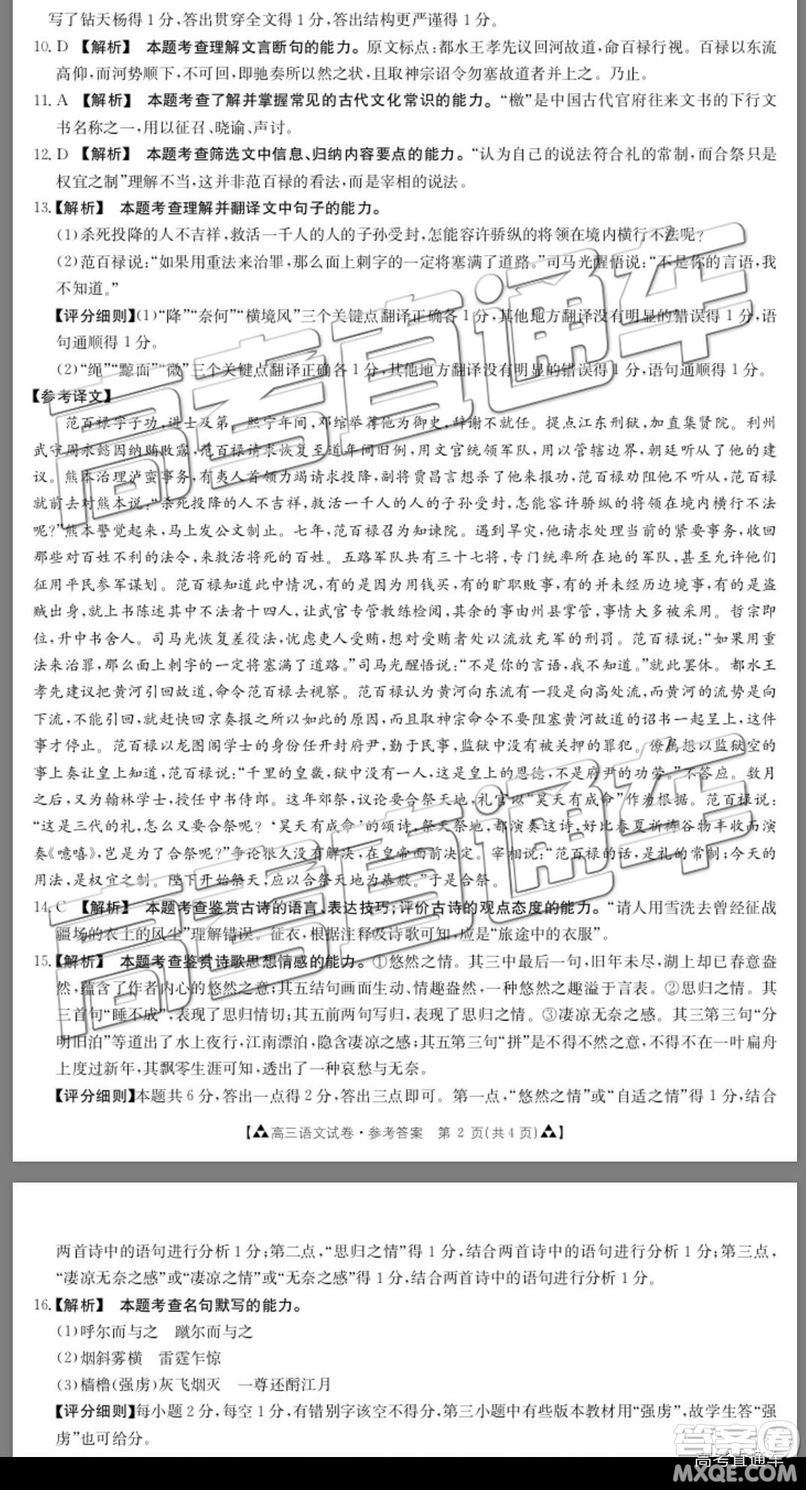 写了钻天杨得1分,答出贯穿全文得1分,答出结构更严谨得1分。
10. D 【解析】 本题考查理解文言断句的能力。原文标点:都水王孝先议回河故道,命百禄行视。百禄以东流
高仰,而河势顺下,不可回,即驰奏所以然之状,且取神宗诏令勿塞故道者并上之。乃止。
11. A 【解析】 本题考查了解并掌握常见的古代文化常识的能力。“檄”是中国古代官府往来文书的下行文
书名称之一,用以征召、晓谕、声讨。
12. D 【解析】 本题考查筛选文中信息、归纳内容要点的能力。“认为自己的说法符合礼的常制,而合祭只是
权宜之制”理解不当,这并非范百禄的看法,而是宰相的说法。
13.【解析】 本题考查理解并翻译文中句子的能力。
(1)杀死投降的人不吉祥,救活一千人的人的子孙受封,怎能容许骄纵的将领在境内横行不法呢?
(2)范百禄说:“如果用重法来治罪,那么面上刺字的一定将塞满了道路。”司马光醒悟说:“不是你的言语,我
不知道。”
【评分细则】(1)“降”“奈何”“横境风”三个关键点翻译正确各1分,其他地方翻译没有明显的错误得1分,语
句通顺得1分。
(2)“绳”“黥面”“微”三个关键点翻译正确各1分,其他地方翻译没有明显的错误得1分,语句通顺得1分。
【参考译文】
范百禄字子功,进士及第。熙宁年间,邓绾举荐他为御史,辞谢不就任。提点江东刑狱,加直集贤院。利州
武守周永懿因纳贿败露,范百禄请求恢复至道年间旧例,用文官统领军队,用以管辖边界,朝廷听从了他的建
议。熊本治理泸蛮事务,有夷人首领力竭请求投降,副将贾昌言想杀了他来报功,范百禄劝阻他不听从,范百禄
就前去对熊本说:“杀死投降的人不吉祥,救活一千人的人的子孙受封,怎能容许骄纵的将领在境内横行不法
呢?”熊本警觉起来,马上发公文制止。七年,范百禄召为知谏院。遇到旱灾,他请求处理当前的紧要事务,收回
那些对百姓不利的法令,来救活将死的百姓。五路军队共有三十七将,专门统率所在地的军队,甚至允许他们
征用平民参军谋划。范百禄知道此中情况,有的是因为用钱买,有的旷职败事,有的并未经历边境,有的是盗
贼出身,就上书陈述其中者十四人,让武官专管教练检阅,其余的事由州县掌管,事情大多获得实行。哲宗即
位,升中书舍人。司马光恢复差役法,忧虑吏人受贿,想对受贿者处以流放充军的刑罚。范百禄说:“如果用重
法来治罪,那么面上刺字的一定将塞满了道路。”司马光醒悟说:“不是你的言语,我不知道。”就此罢休。都水王
孝先建议把黄河引回故道,命令范百禄去视察。范百禄认为黄河向东流的一段是向高处流,而黄河的流势是向
下流,不能引回,就赶快回京奏报之所以如此的原因,而且取神宗命令不要阻塞黄河故道的诏书一起呈上,这件
事才停止。范百禄以龙图阁学士的身份任开封府尹,勤于民事,监狱中没有被关押的罪犯。僚属想以监狱空的
事上奏让皇上知道,范百禄说:“千里的皇畿,狱中没有一人,这是皇上的恩德,不是府尹的功劳。”不答应。数月
之后,又为翰林学士,授任中书侍郎。这年郊祭,议论要合祭天地,礼官以“昊天有成命”作为根据。范百禄说:
“这是三代的礼,怎么又要合祭呢?‘昊天有成命’的颂诗,祭天祭地,都演奏这诗,好比春夏祈祷谷物丰收而演
奏《噫嘻》,岂是为了合祭呢?”争论很久没有解决,在皇帝面前决定。宰相说:“范百禄的话,是礼的常制;今天的
用法,是权宜之制。陛下开始祭天,应以合祭天地为恭敬。”于是合祭。
14. C 【解析】 本题考查鉴赏古诗的语言、表达技巧;评价古诗的观点态度的能力。“请人用雪洗去曾经征战
疆场的衣上的风尘”理解错误。征衣,根据注释及诗歌可知,应是“旅途中的衣服”。
15.【解析】 本题考查鉴赏诗歌思想情感的能力。①悠然之情。其三中最后一句,旧年未尽,湖上却已春意盎
然,蕴含了作者内心的悠然之意;其五结句画面生动、情趣盎然,一种悠然之趣溢于言表。②思归之情。其
三首句“睡不成”,表现了思归情切;其五前两句写归,表现了思归之情。③凄凉无奈之感。其三第三句“分
明旧泊”等点明出了水上夜行,江南漂泊,饱含凄凉之情;其五第三句“拼”是不得不然之意,不得不在一叶扁舟
上度过新年,其飘零生涯可知,透出了一种哀愁与无奈。
【评分细则】本题共6分,答出一点得2分,答出三点即可。第一点,“悠然之情”或“自适之情”得1分,结合
【高三语文试卷·参考答案 第2页(共4页)】
两首诗中的语句进行分析1分;第二点,“思归之情”得1分,结合两首诗中的语句进行分析1分;第三点,
“凄凉无奈之感”或“凄凉之情”或“无奈之感”得1分,结合两首诗中的语句进行分析1分。
16.【解析】 本题考查名句默写的能力。
(1)呼尔而与之 蹴尔而与之
(2)烟斜雾横 雷霆乍惊
(3)樯橹(强虏)灰飞烟灭 一尊还酹江月
【评分细则】每小题2分,每空1分,有错别字该空不得分。第三小题中有些版本教材用“强虏”,故学生答“强
虏”也可给分。
高考直通车
高考直通车
答案圈
高考直通车
MXQE.COM